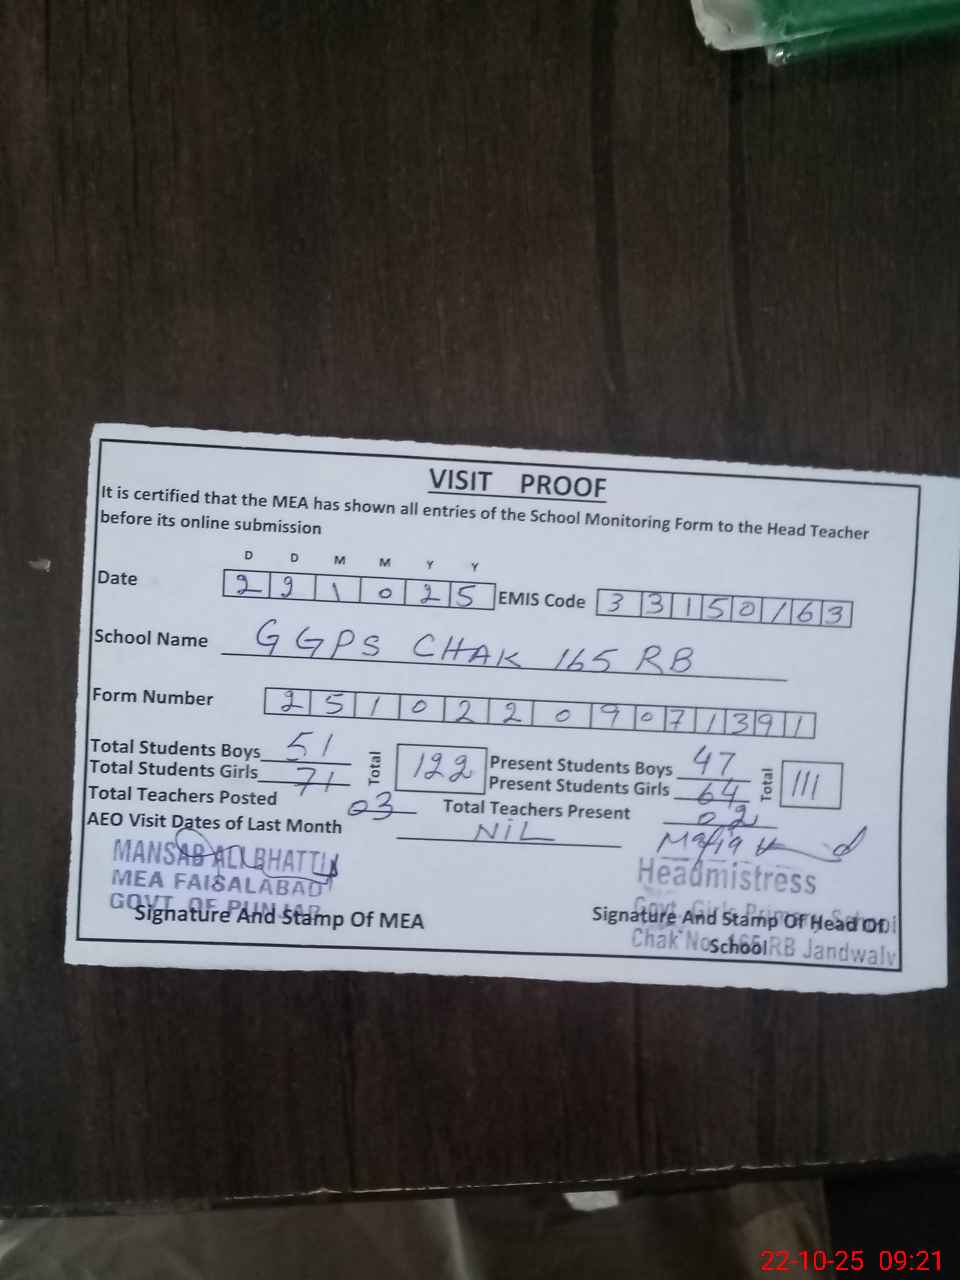 VISIT PROOF
It is certified that the MEA has shown all entries of the School Monitoring Form to the Head Teacher
before its online submission
D D M M Y Y
Date 22 10 25 EMIS Code 33150163
School Name GGPS CHAK 165 RB
Form Number 25102209071391
Total Students Boys 51 Total 122 Present Students Boys 47 Total 111
Total Students Girls 71 Present Students Girls 64
Total Teachers Posted 03 Total Teachers Present 02
AEO Visit Dates of Last Month NIL
MANSAB ALI BHATTI
MEA FAISALABAD
GOVT OF PUNJAB
Signature And Stamp Of MEA
Headmistress
Govt. Girls Primary School
Signature And Stamp Of Head Of
School
Chak No. 165 RB Jandwaly
22-10-25 09:21